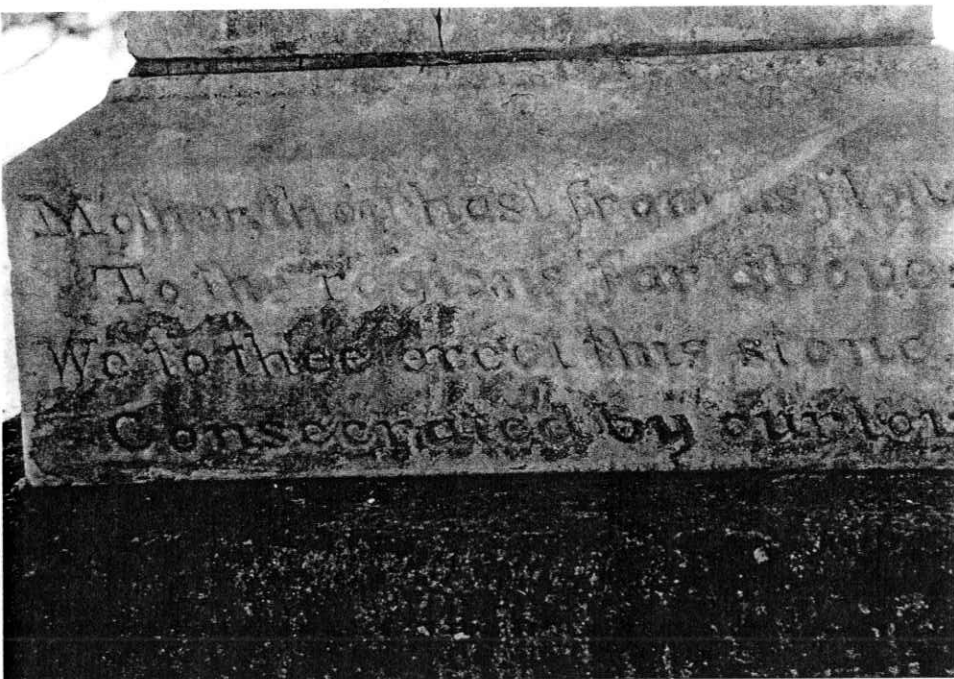 Mother, thou hast from us flow
To the regions far above
We to thee erect this stone.
Consecrated by our lov